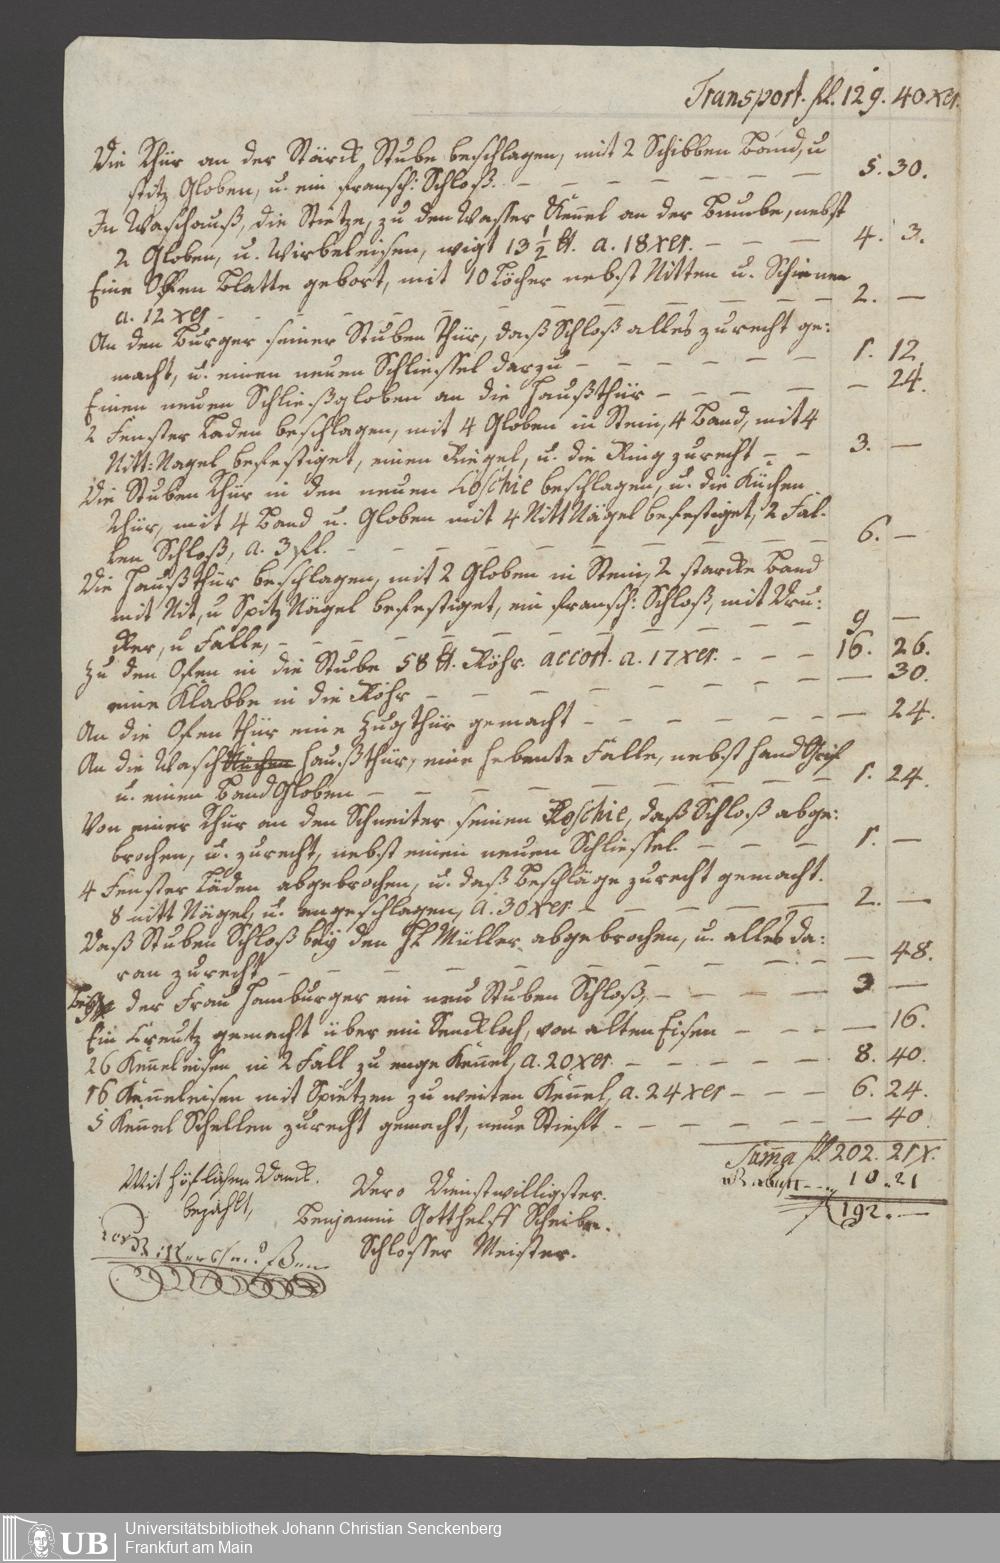 Transport. fl. 129. 40 xer.
Die Thür an der Stärck, Stube beschlagen, mit 2 Schibben Band, u
stitz Globen, u. ein fransch: Schloß. — — — — — — — 5. 30.
In Waschauß, die Stietze, zu den Wasser Kennel an der Bumbe, nebst
2 Globen, u. Wirbeleisen, wigt 13 ½ ℔. a. 18 xer. — — — 4. 3.
Eine Offen Blatte gebort, mit 10 Löcher nebst Nitten u. Schienen
a. 12 xer — — — — — — — — — — 2. —
An den Burger seiner Stuben Thür, daß Schloß alles zurecht ge:
macht, u. einen neuen Schliessel darzu — — — — — — 1. 12
Einen neuen Schließgloben an die Haußthür — — — — — 24.
2 Fenster Laden beschlagen, mit 4 Globen in Stein, 4 Band, mit 4
Nitt: Nagel befestiget, einen Riegel, u. die Ring zurecht — — 3. —
Die Stuben Thür in den neuen Loschie beschlagen, u. die Küchen
Thür, mit 4 Band u. Globen mit 4 Nitt Nägel befestiget, 2 Fal-
len Schloß, a. 3 fl. — — — — — — — — — 6. —
Die Hauß Thür beschlagen, mit 2 Globen in Stein, 2 starcke Band
mit Nit, u Spitz Nägel befestiget, ein fransch: Schloß, mit Dru:
cker, u Falle, — — — — — — — — — 9 —
Zu den Ofen in die Stube 58 ℔. Röhr. accort. a. 17 xer. — — — 16. 26.
eine Klabbe in die Röhr — — — — — — — — 30.
An die Ofen Thür eine Zug Thür gemacht — — — — — — 24.
An die Wasch Küchen Haußthür, eine hebente Falle, nebst Hand Grif
u. einen Band Globen — — — — — — — — 1. 24.
Von einer Thür an den Schneiter seinen Loschie, daß Schloß abge:
brochen, u. zurecht, nebst einen neuen Schliessel. — — — 1. —
4 Fenster Läden abgebrochen, u. daß Beschläge zurecht gemacht.
8 nitt Nägel, u. angeschlagen, a. 30 xer — — — — — 2. —
Daß Stuben Schloß bey den H. Müller abgebrochen, u. alles da:
ran zurecht — — — — — — — — — — 48.
Bey der Frau Hamburger ein neu Stuben Schloß, — — — — 3 —
Ein Kreutz gemacht über ein Senckloch, von alten Eisen — — — — 16.
26 Kenneleisen in 2 Fall zu enge Kennel, a. 20 xer. — — — — — 8. 40.
16 Kenneleisen mit Spietzen zu weiten Kennel, a. 24 xer — — — 6. 24.
5 Kennel Schellen zurecht gemacht, neue Stieft — — — — — — 40.
Suma fl. 202. 21 x.
Rabatt — 10. 21
192. —
Mit höflichem Danck.
bezahlt,
Dero Dienstwilligster.
Benjamin Gotthelff Scheibe.
Schlosser Meister.
UB Universitätsbibliothek Johann Christian Senckenberg
Frankfurt am Main